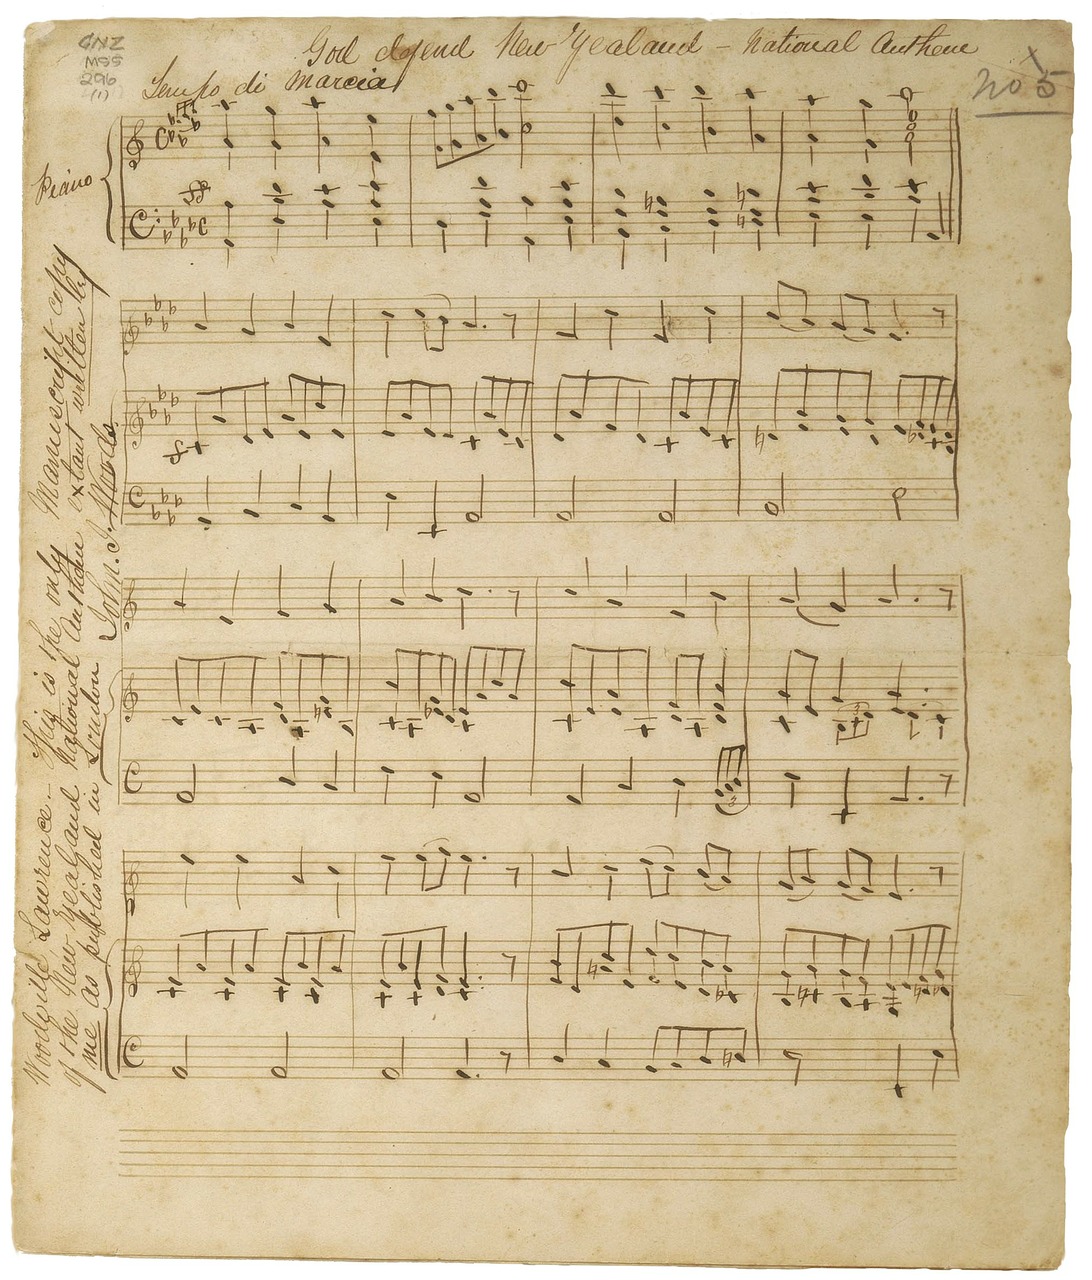 God defend New Zealand - National Anthem
GNZ
MSS
296
(1)
No 5
Tempo di Marcia
Piano
ff
Woodville Lawrence - This is the only Manuscript copy
of the New Zealand National Anthem extant written by
me as published in London John. J. Woods.